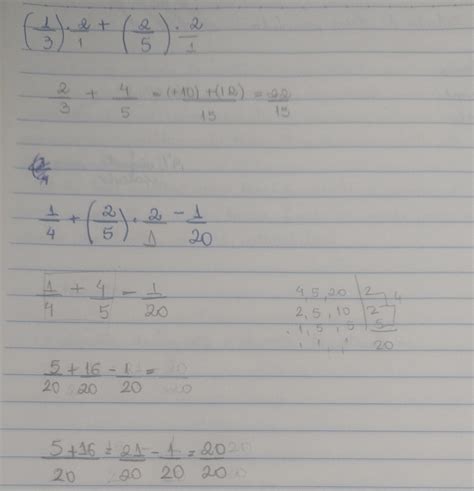 (1/3) · 2/1 + (2/5) · 2/1
2/3 + 4/5 = (+10) + (12)/15 = 22/15
1/4 + (2/5) · 2/1 - 1/20
1/4 + 4/5 - 1/20
4, 5, 20 | 2
2, 5, 10 | 2
1, 5, 5 | 5
1, 1, 1 20
5/20 + 16/20 - 1/20 =
5+16/20 = 21/20 - 1/20 = 20/20